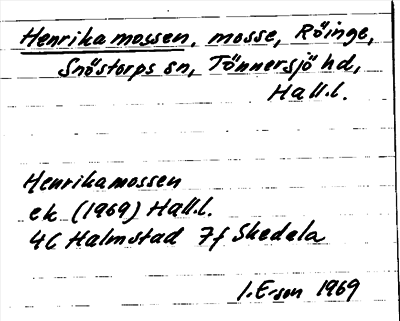 Henrikamossen, mosse, Röinge,
Snöstorps sn, Tönnersjö hd,
Hall.l.
Henrikamossen
ek (1969) Hall.l.
4C Halmstad 7f Skedala
I. E-son 1969